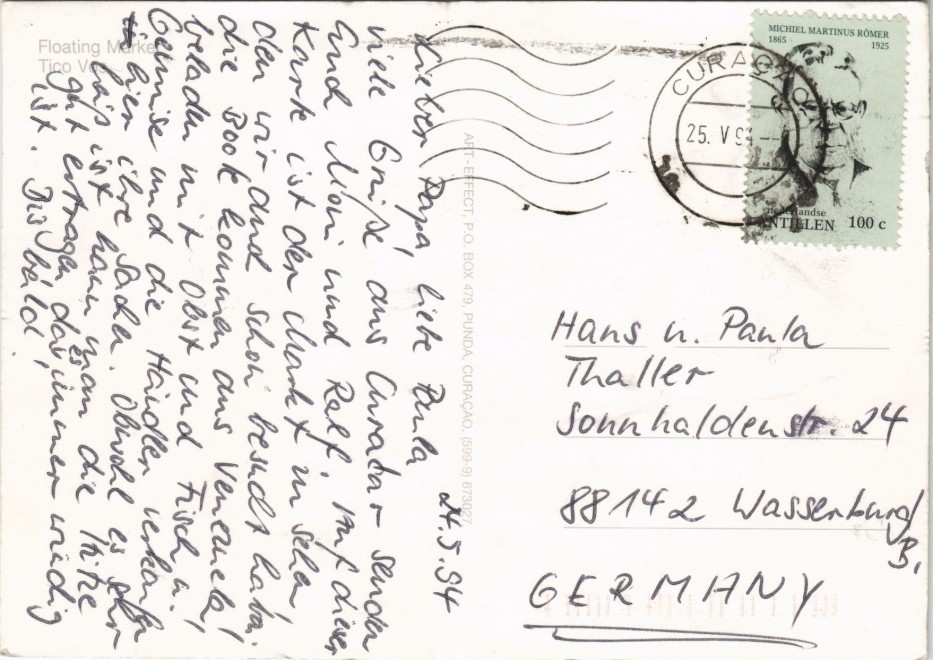 Floating Market
Tico Vos
24.5.94
Lieber Papa, liebe Paula
viele Grüße aus Curacao senden
Euch Moni und Ralf. Auf dieser
Karte ist der Markt zu sehen,
den wir auch schon besucht haben.
die Boote kommen aus Venezuela,
beladen mit Obst und Fisch u.
Gemüse und die Händler verkaufen
hier ihre Sachen. Obwohl es sehr
heiß ist kann man die Hitze
gut ertragen da es immer windig
ist. Bis bald!
ART-EFFECT, P.O. BOX 479, PUNDA, CURAÇAO, (599-9) 673027
MICHIEL MARTINUS RÖMER
1865 1925
Nederlandse
ANTILLEN 100 c
CURAÇAO
25. V 94
Hans u. Paula
Thaller
Sonnhaldenstr. 24
88142 Wasserburg
B.
GERMANY